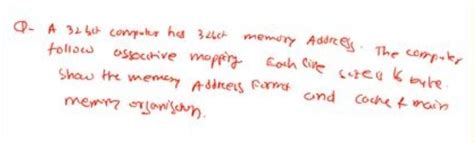 Q- A 32 bit computer has 32bit memory Address. The computer
follow associative mapping Each line size is 16 byte.
Show the memory Address Format and cache & main
memory organisation.